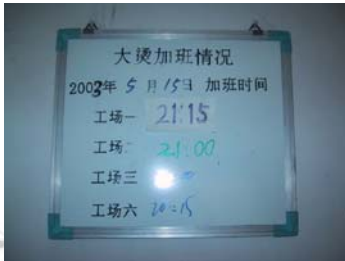 大烫加班情况
2003年 5月15日 加班时间
工场一 21:15
工场二 21:00
工场三
工场六 20:15